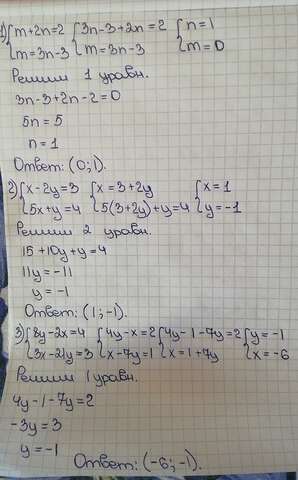 1) {m+2n=2 {3n-3+2n=2 {n=1
{m=3n-3 {m=3n-3 {m=0
Решим 1 уравн.
3n-3+2n-2=0
5n=5
n=1
Ответ: (0;1).
2) {x-2y=3 {x=3+2y {x=1
{5x+y=4 {5(3+2y)+y=4 {y=-1
Решим 2 уравн.
15+10y+y=4
11y=-11
y=-1
Ответ: (1;-1).
3) {8y-2x=4 {4y-x=2 {4y-1-7y=2 {y=-1
{3x-21y=3 {x-7y=1 {x=1+7y {x=-6
Решим 1 уравн.
4y-1-7y=2
-3y=3
y=-1
Ответ: (-6;-1).